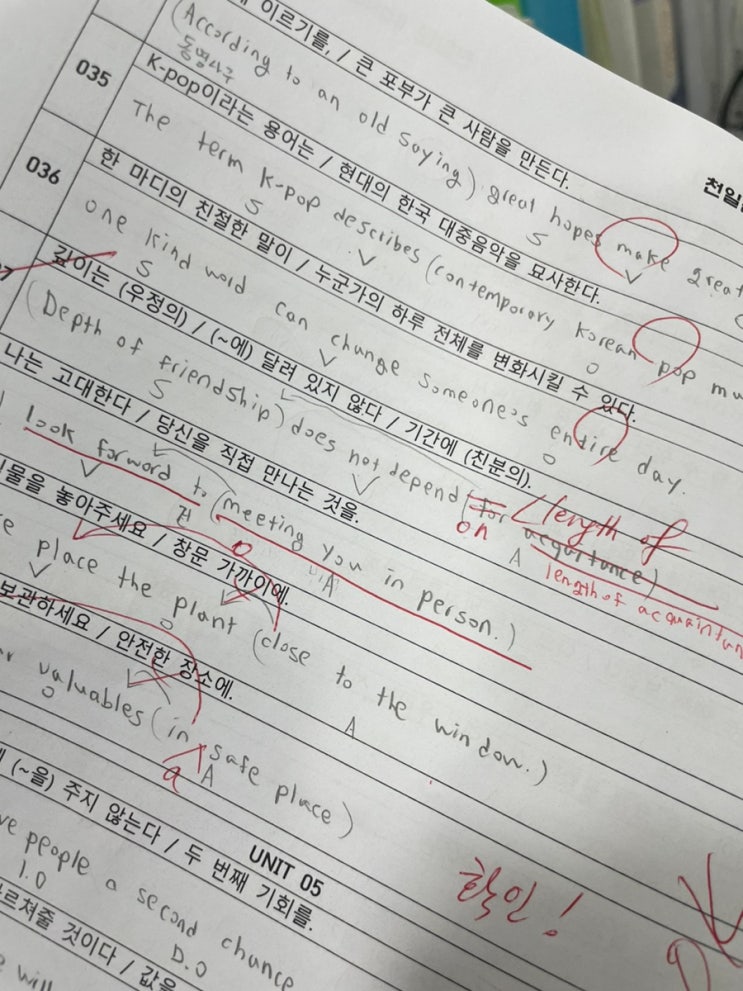 이르기를, / 큰 포부가 큰 사람을 만든다.
(According to an old saying) great hopes make great
동명사구
S V
035
K-pop이라는 용어는 / 현대의 한국 대중음악을 묘사한다.
The term K-pop describes (contemporary Korean pop mu
S V O
036
한 마디의 친절한 말이 / 누군가의 하루 전체를 변화시킬 수 있다.
one kind word can change someone's entire day.
S V O
깊이는 (우정의) / (~에) 달려 있지 않다 / 기간에 (친분의).
(Depth of friendship) does not depend (for acquitance)
S V A
on length of
length of acquaintan
나는 고대한다 / 당신을 직접 만나는 것을.
look forward to (meeting you in person.)
V O A
물을 놓아주세요 / 창문 가까이에.
place the plant (close to the window.)
V O A
보관하세요 / 안전한 장소에.
valuables (in safe place)
O a A
(~을) 주지 않는다 / 두 번째 기회를.
ve people a second chance
I.O D.O
UNIT 05
확인!
르쳐줄 것이다 / 값을
will
천일